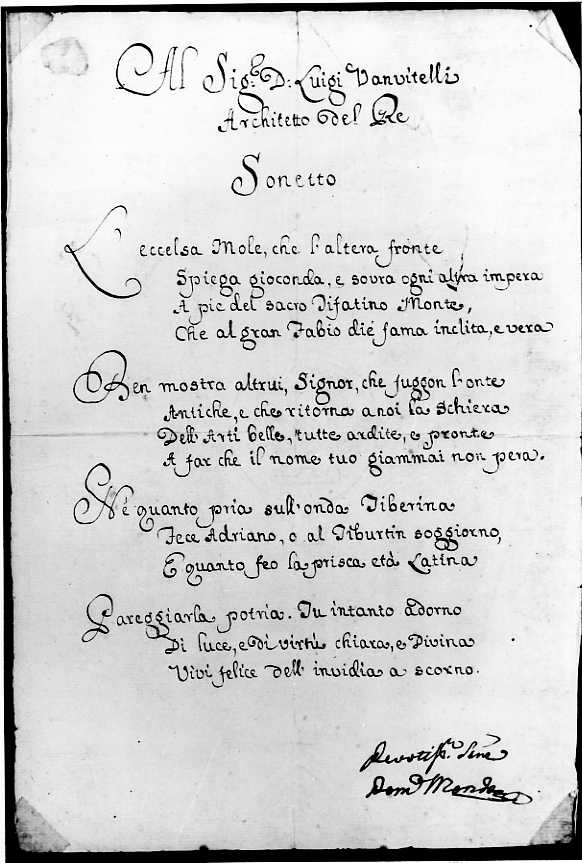 Al Sig.r D: Luigi Vanvitelli
Architetto del Re
Sonetto
L'eccelsa Mole, che l'altera fronte
Spiega gioconda, e sovra ogni altra impera
A piè del sacro Tifatino Monte,
Che al gran Fabio diè fama inclita, e vera
Ben mostra altrui, Signor, che fuggon l'onte
Antiche, e che ritorna a noi la schiera
Dell'Arti belle, tutte ardite, e pronte
A far che il nome tuo giammai non pera.
Nè quanto pria sull'onda Tiberina
Fece Adriano, o al Tiburtin soggiorno,
E quanto feo la prisca età Latina
Pareggiarla potria. Tu intanto adorno
Di luce, e di virtù chiara, e Divina
Vivi felice dell'invidia a scorno.